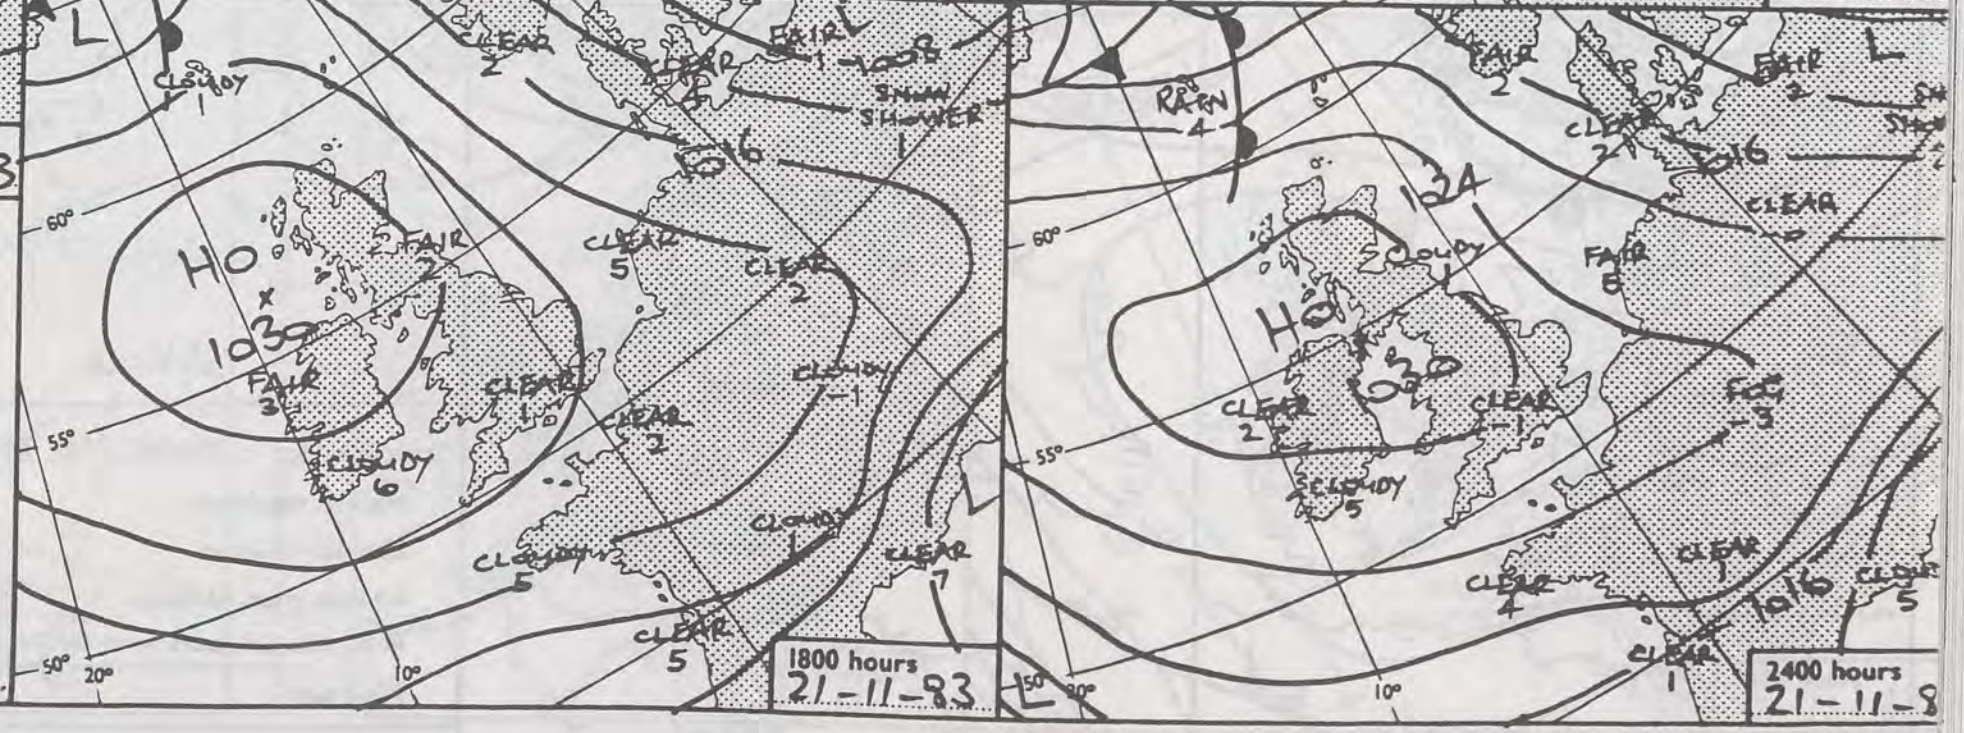 L
CLOUDY
1
CLEAR
2
CLEAR
4
FAIR
1
1008
SNOW
SHOWER
1
1016
3
60°
HO
x
1030
FAIR
2
CLEAR
5
CLEAR
2
FAIR
3
CLEAR
1
CLOUDY
-1
CLEAR
2
55°
CLOUDY
6
CLOUDY
5
CLOUDY
1
CLEAR
7
CLEAR
5
50°
20°
10°
1800 hours
21-11-83
RAIN
4
FAIR
2
CLEAR
2
FAIR
2
L
1016
1024
CLEAR
-0
60°
CLOUDY
1
FAIR
6
HO
1030
CLEAR
2
CLEAR
-1
FOG
-3
55°
CLOUDY
5
CLEAR
4
CLEAR
1
1016
5
CLEAR
1
L
50
20°
10°
2400 hours
21-11-8